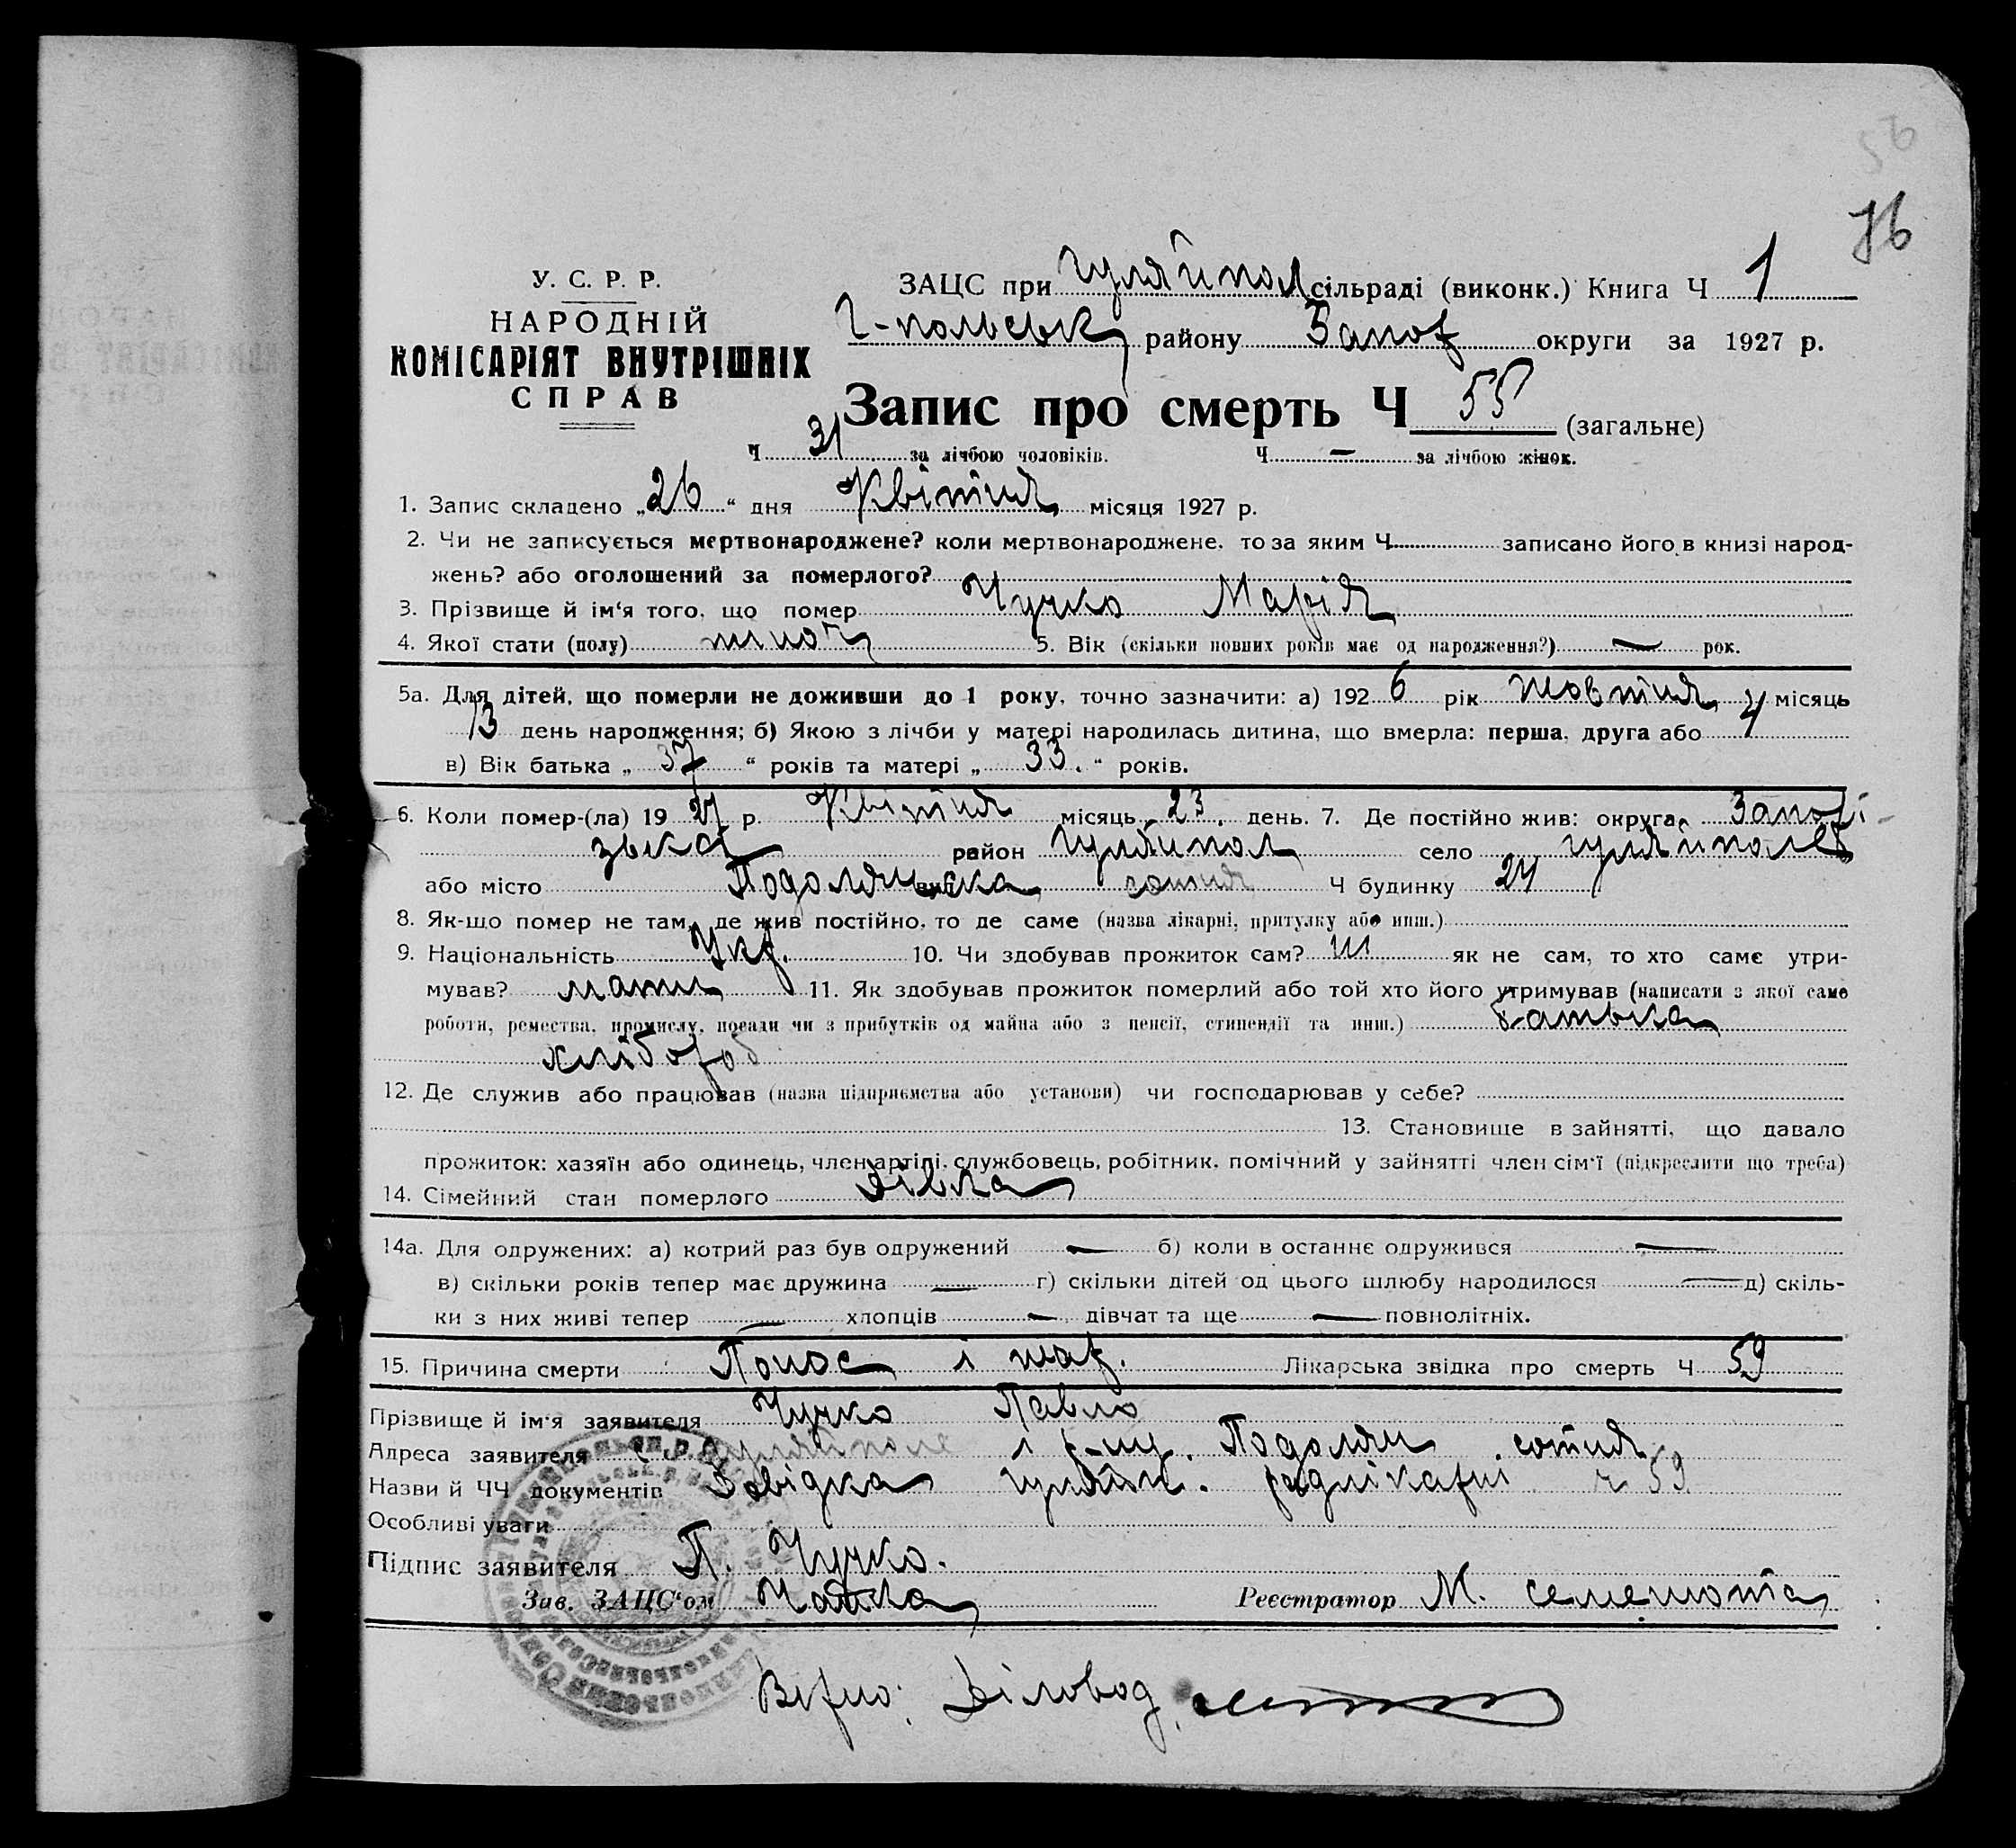 56
76
У. С. Р. Р.
НАРОДНІЙ
КОМІСАРІЯТ ВНУТРІШНІХ
СПРАВ
ЗАЦС при Гуляйпол сільраді (виконк.) Книга Ч 1
Г-польськ району Запор округи за 1927 р.
Запис про смерть Ч 55 (загальне)
Ч 31 за лічбою чоловіків. Ч — за лічбою жінок.
1. Запис складено „26“ дня Квітня місяця 1927 р.
2. Чи не записується мертвонароджене? коли мертвонароджене, то за яким Ч записано його в книзі народ-
жень? або оголошений за померлого?
3. Прізвище й ім‘я того, що помер Чучко Марія
4. Якої стати (полу) жіноч 5. Вік (скільки повних років має од народження?) — рок.
5а. Для дітей, що померли не доживши до 1 року, точно зазначити: а) 1926 рік Жовтня місяць
13 день народження; б) Якою з лічби у матері народилась дитина, що вмерла: перша, друга або 4
в) Вік батька „37“ років та матері „33.“ років.
6. Коли помер-(ла) 1927 р. Квітня місяць 23. день. 7. Де постійно жив: округа Запорі-
зька район Гуляйпол село Гуляйполе
або місто Подолянська сотня Ч будинку 24
8. Як-що помер не там, де жив постійно, то де саме (назва лікарні, притулку або инш.)
9. Національність Укр. 10. Чи здобував прожиток сам? ні як не сам, то хто саме утри-
мував? мати 11. Як здобував прожиток померлий або той хто його утримував (написати з якої саме
роботи, ремества, промислу, посади чи з прибутків од майна або з пенсії, стипендії та инш.) батька
хлібороб
12. Де служив або працював (назва підприємства або установи) чи господарював у себе?
13. Становище в зайнятті, що давало
прожиток: хазяїн або одинець, член артілі, службовець, робітник, помічний у зайнятті член сім‘ї (підкреслити що треба)
14. Сімейний стан померлого Дівка
14а. Для одружених: а) котрий раз був одружений — б) коли в останнє одружився —
в) скільки років тепер має дружина — г) скільки дітей од цього шлюбу народилося — д) скіль-
ки з них живі тепер — хлопців — дівчат та ще — повнолітніх.
15. Причина смерти Понос і жар. Лікарська звідка про смерть Ч 59
Прізвище й ім‘я заявителя Чучко Павло
Адреса заявителя Гуляйполе і р-ну Подолян сотня
Назви й ЧЧ документів Завідка Гуляйп. радлікарні ч 59
Особливі уваги
Підпис заявителя П. Чучко.
Зав. ЗАЦС‘ом Реєстратор М.
Верно: Діловод